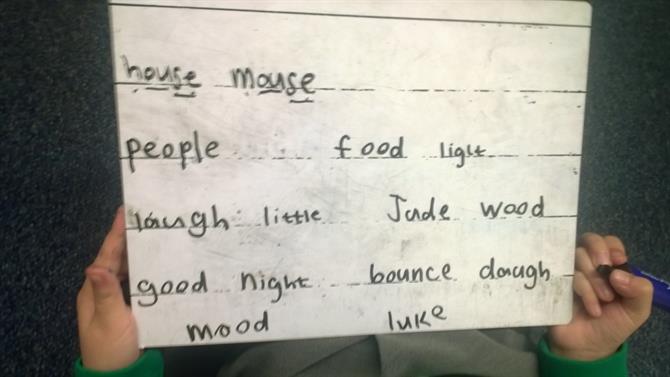 house mouse
people food light
laugh little Jude wood
good night bounce daugh
mood luke